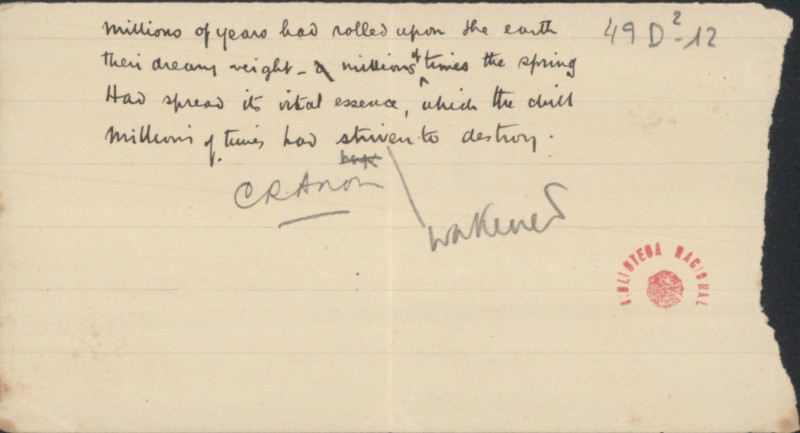 millions of years had rolled upon the earth
their dreamy weight - a millions of times the spring
Had spread its vital essence, which the chill
Millions of times had striven to destroy.
C R Anon
wakened
49 D²-12
BIBLIOTECA NACIONAL